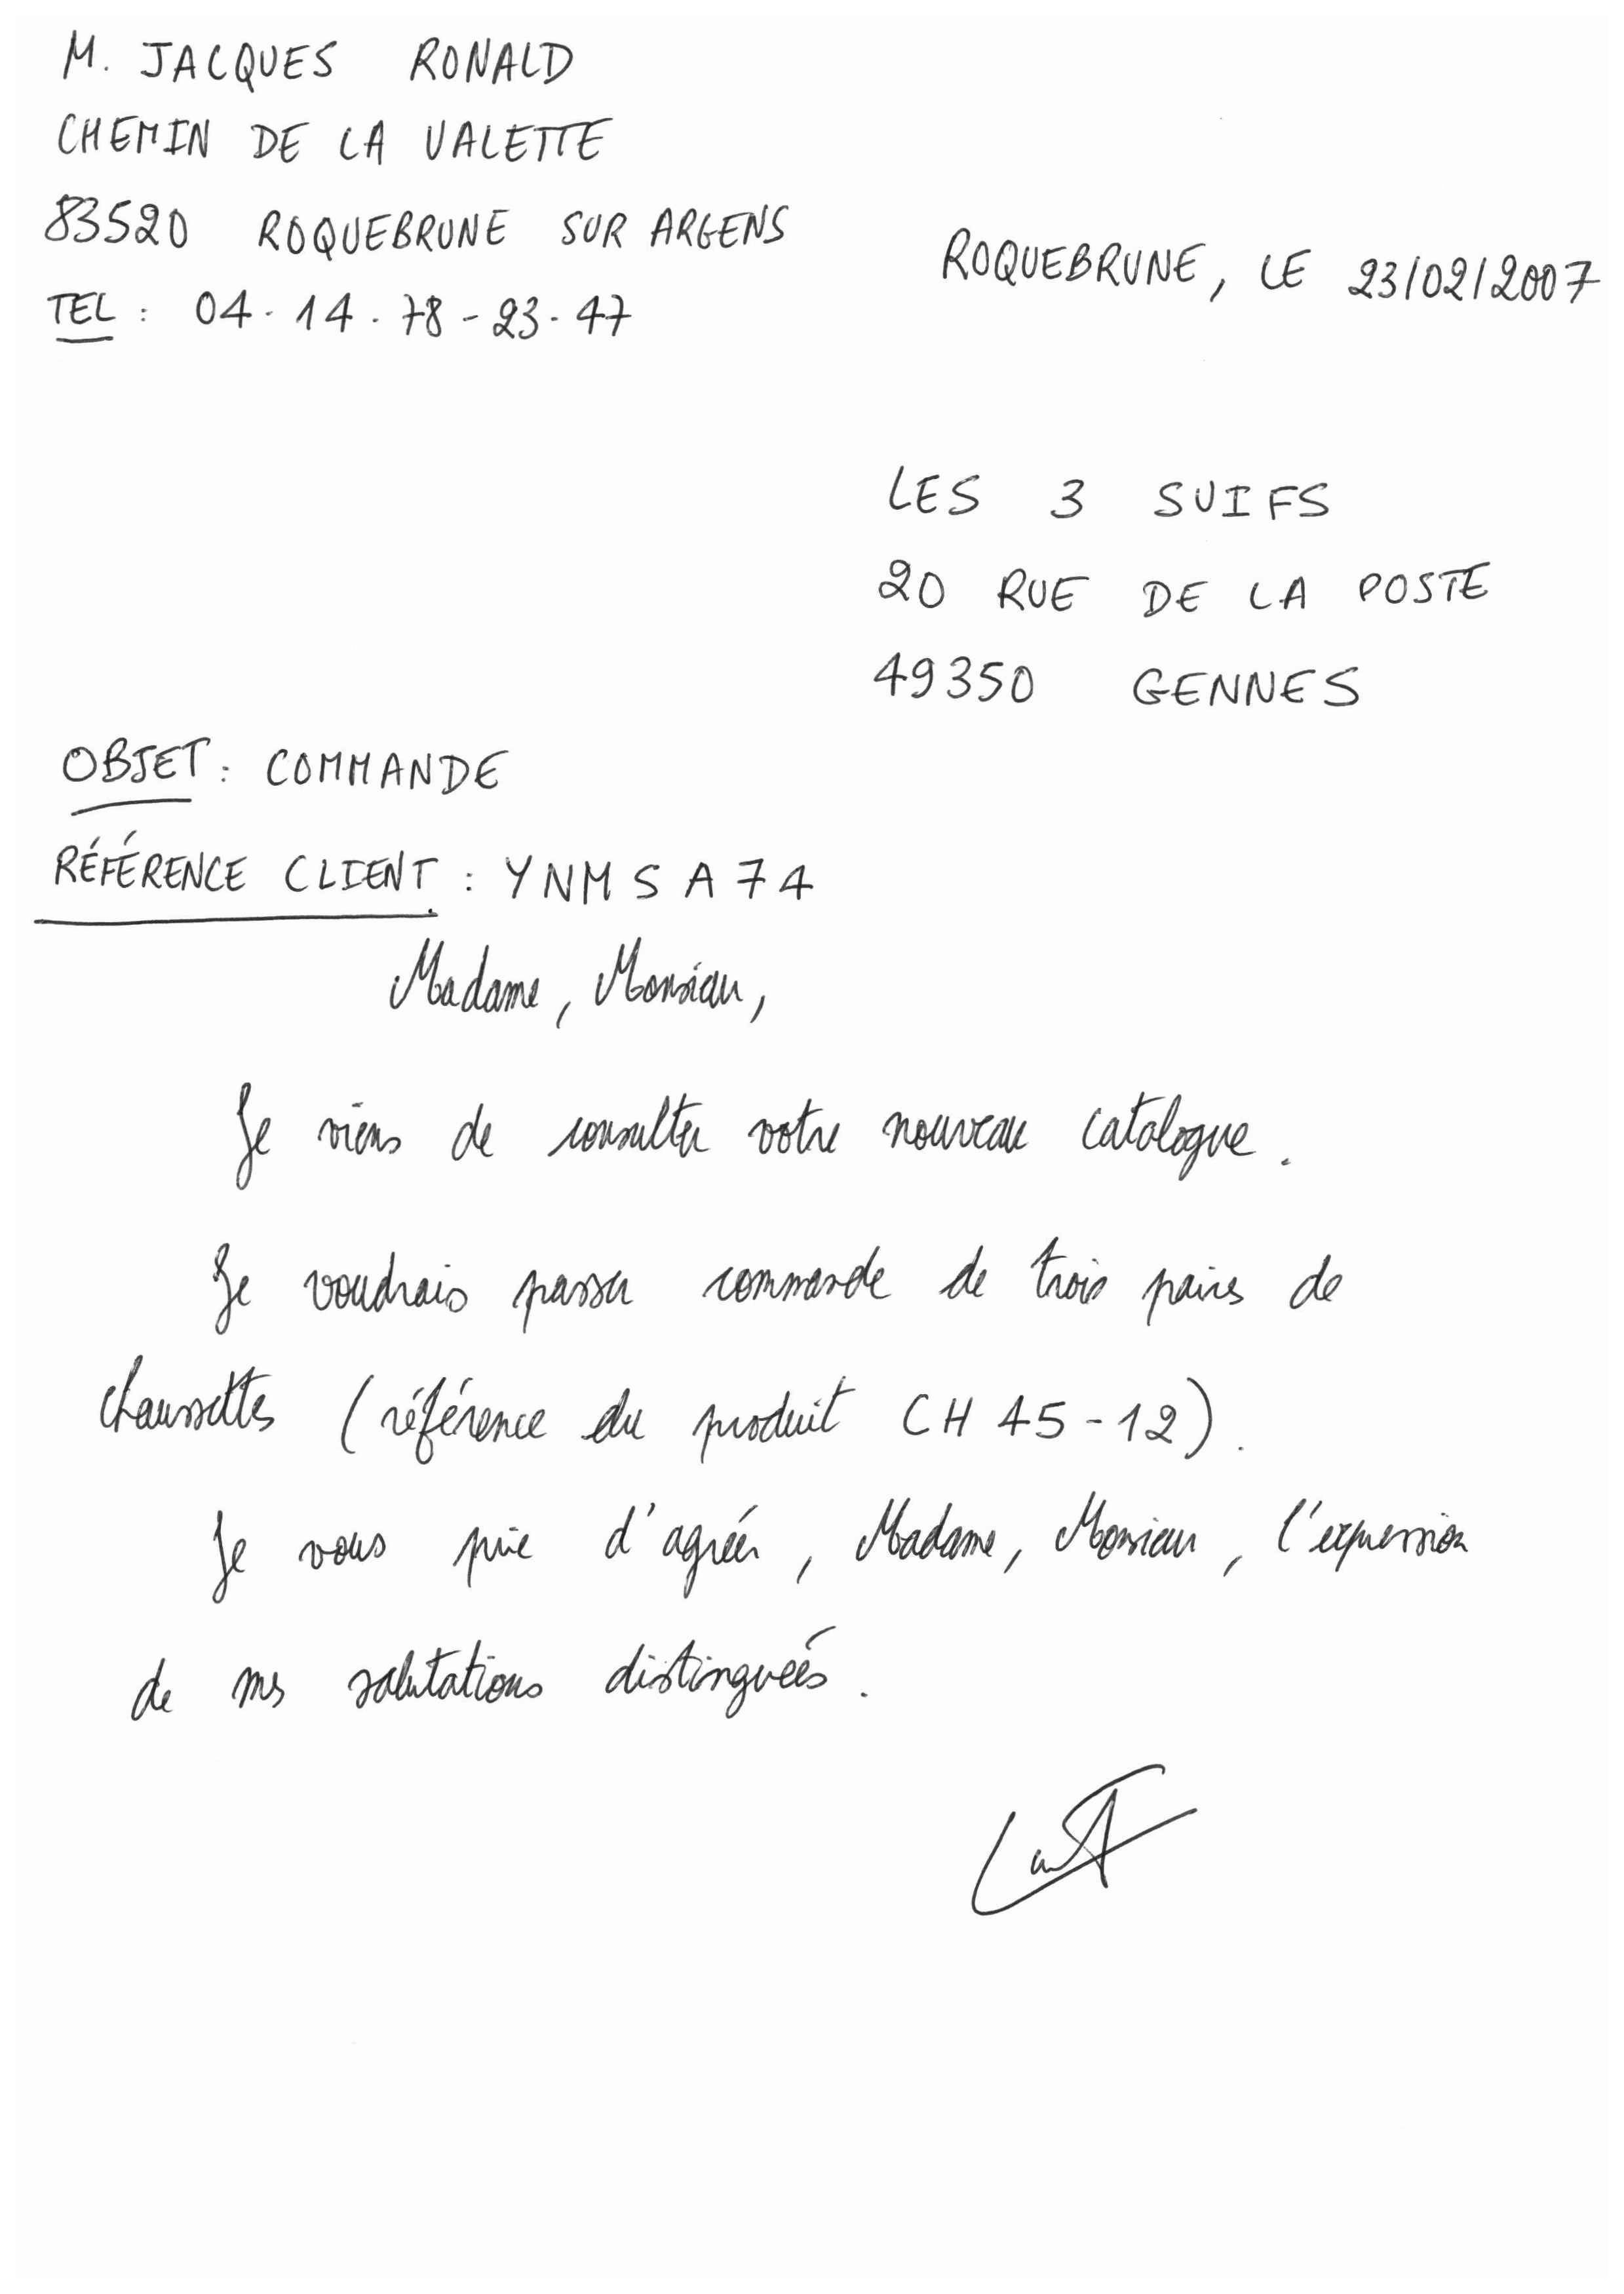 M. JACQUES RONALD
CHEMIN DE LA VALETTE
83520 ROQUEBRUNE SUR ARGENS
TEL : 04.14.78-23.47
ROQUEBRUNE, LE 23/02/2007
LES 3 SUIFS
20 RUE DE LA POSTE
49350 GENNES
OBJET : COMMANDE
RÉFÉRENCE CLIENT : YNMSA74
Madame, Monsieur,
Je viens de consulter votre nouveau catalogue.
Je voudrais passer commande de trois paires de
chaussettes (référence du produit CH45-12).
Je vous prie d'agréer, Madame, Monsieur, l'expression
de mes salutations distinguées.